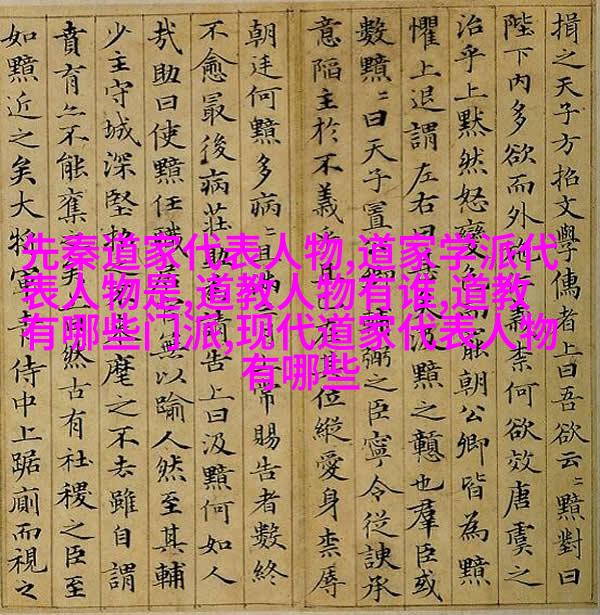 揖之天子方招文學儒者上曰吾欲云〻黯對曰
陛下內多欲而外施義柰何欲效唐虞之
治乎上默然怒變色而罷朝公卿皆為黯
懼上退謂左右曰甚汲黯之戇也羣臣或
數黯〻曰天子置公弼之臣寧令從諛承
意陷主於不義乎且已在其位縱愛身柰辱
朝廷何黯多病〻且滿三月常賜告者數終
不愈最後病莊助請告上曰汲黯何如人
哉助曰使黯任職居無以踰人然至其輔
少主守城深堅招之麾之不去雖自謂
賁育亦不能奪之矣然古有社稷之臣至
如黯近之矣大將軍青侍中上踞廁而視之
先秦道家代表人物,道家学派代
表人物是,道教人物有谁,道教
有哪些门派,现代道家代表人物
有哪些